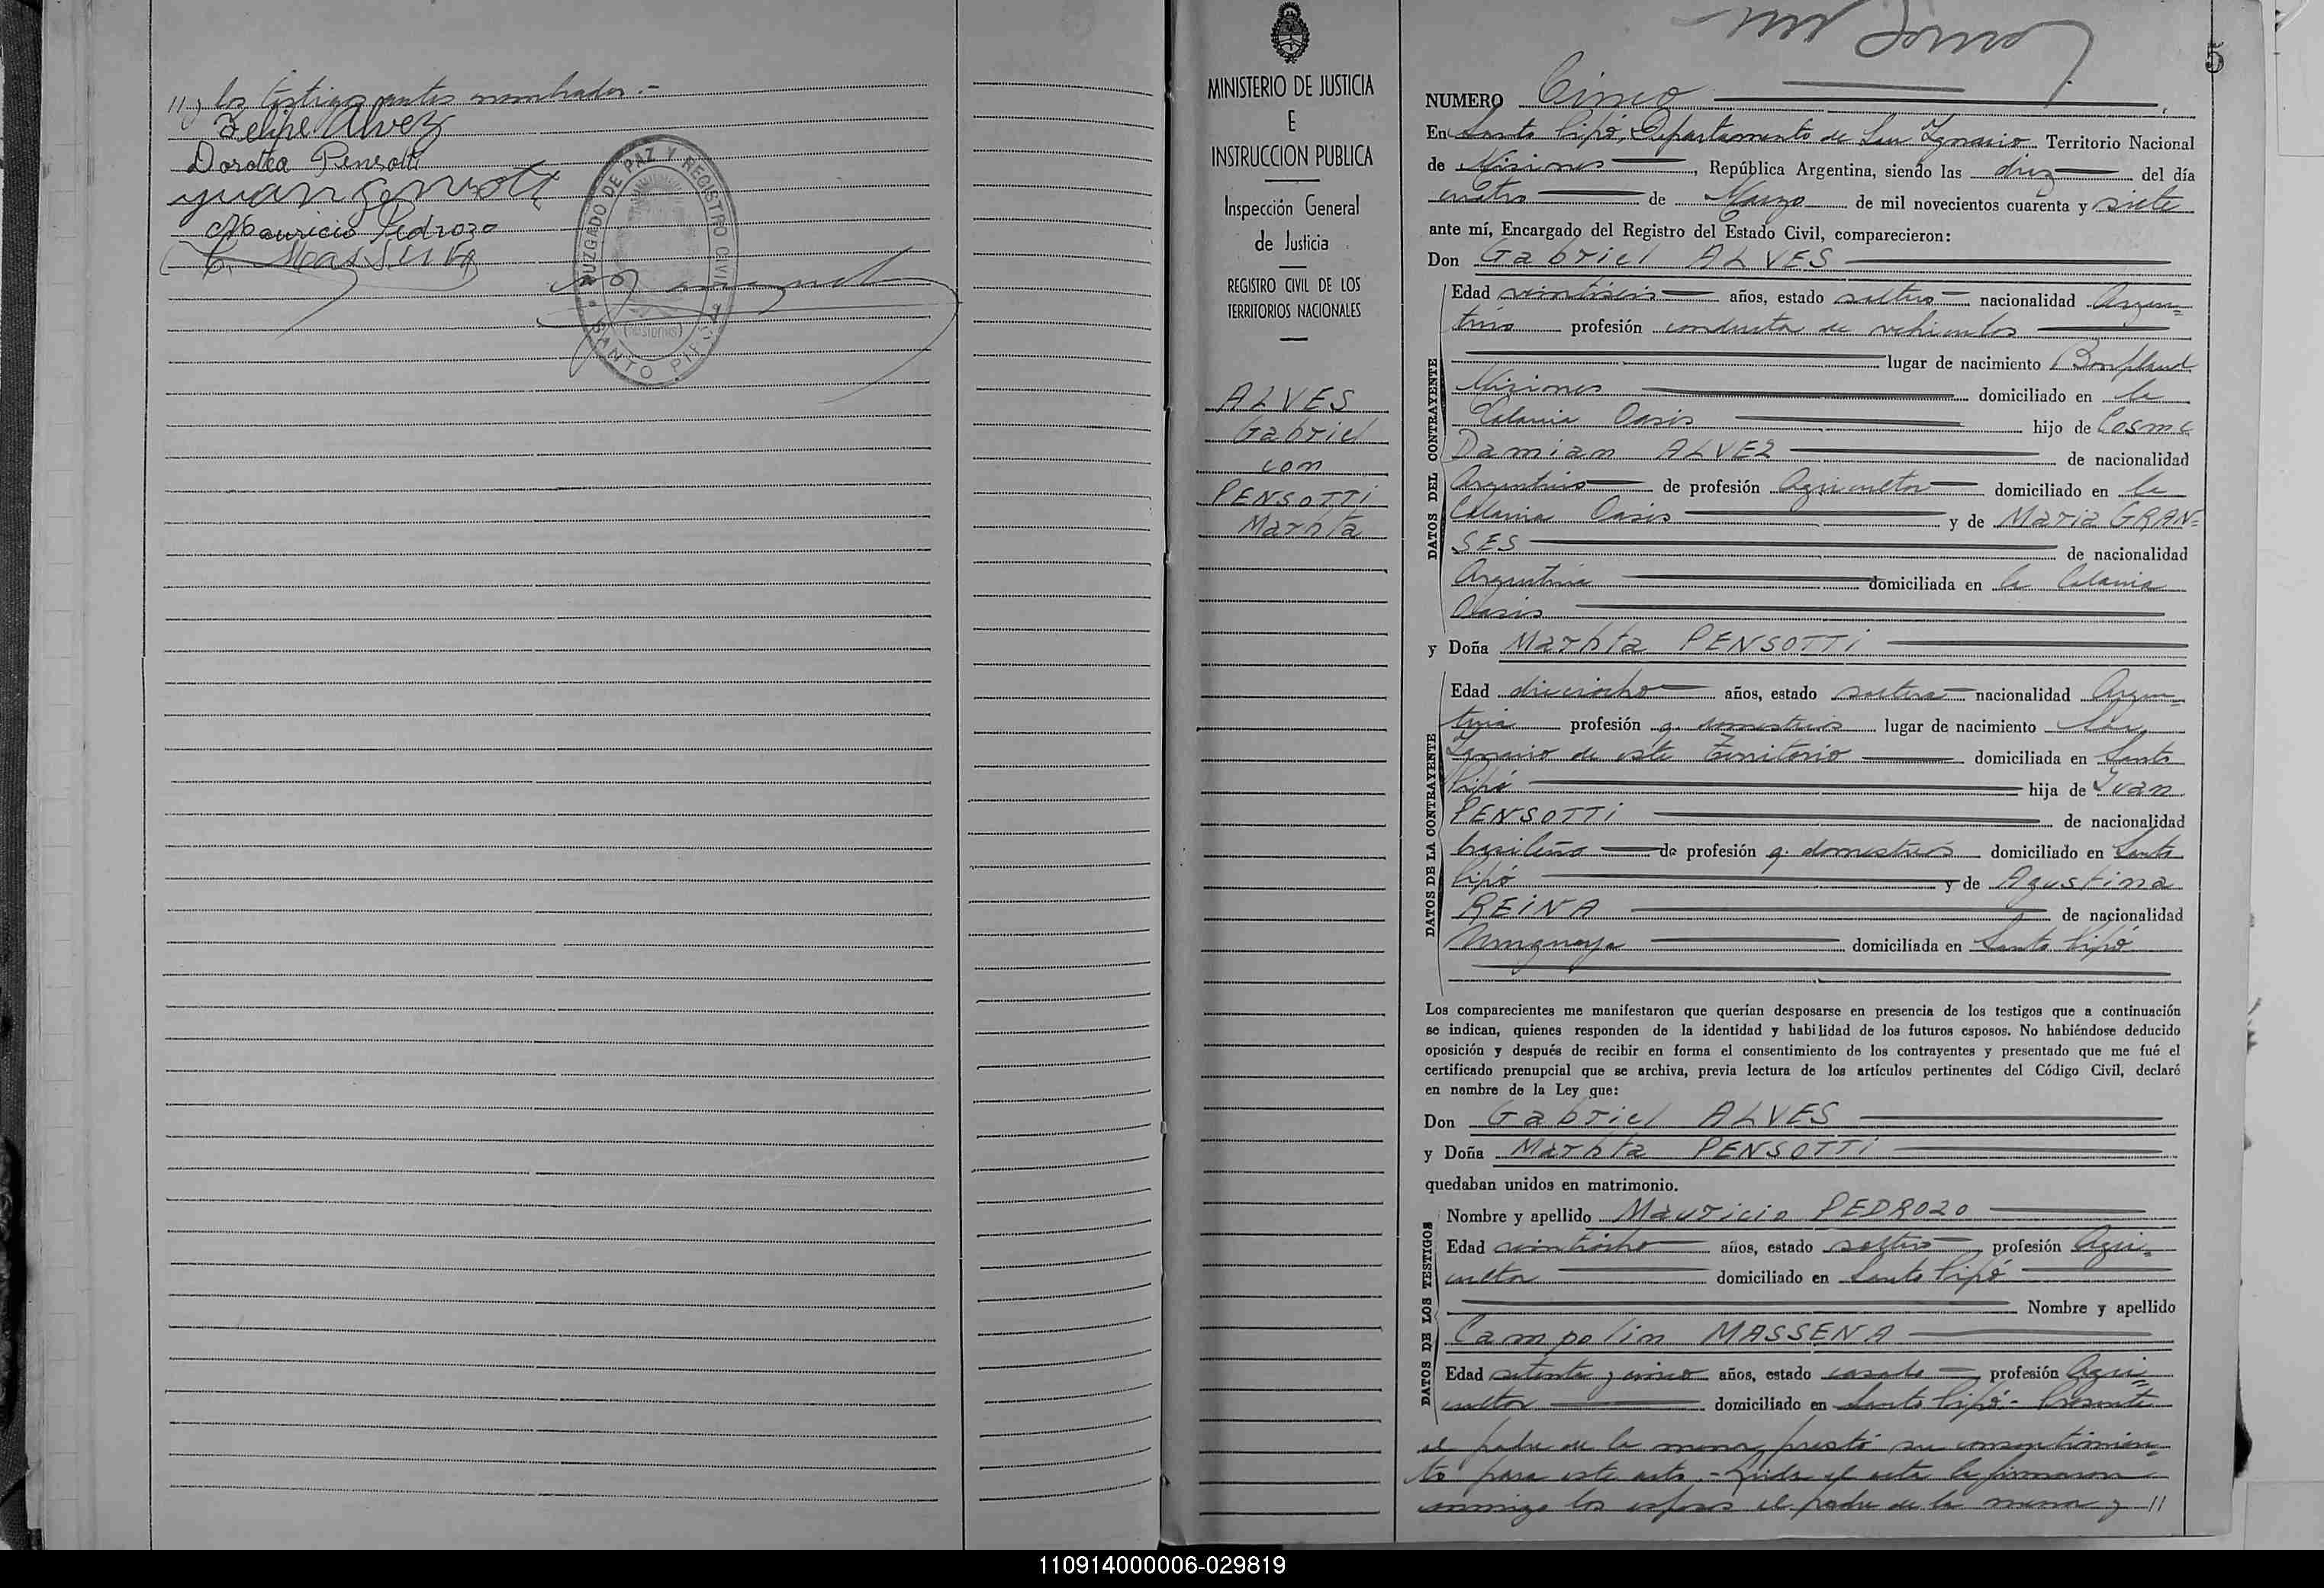 11) los testigos antes nombrados.-
Felipe Alvez
Dorotea Pensotti
Juan Pensotti
Mauricio Pedrozo
C. Massena
JUZGADO DE PAZ Y REGISTRO CIVIL
(Misiones)
SANTO PIPÓ
5
MINISTERIO DE JUSTICIA
E
INSTRUCCION PUBLICA
Inspección General
de Justicia
REGISTRO CIVIL DE LOS
TERRITORIOS NACIONALES
ALVES
Gabriel
con
PENSOTTI
Marhta
NUMERO Cinco
En Santo Pipó, Departamento de San Ignacio Territorio Nacional
de Misiones, República Argentina, siendo las diez del día
cuatro de Marzo de mil novecientos cuarenta y siete
ante mí, Encargado del Registro del Estado Civil, comparecieron:
Don Gabriel ALVES
DATOS DEL CONTRAYENTE
Edad veintiseis años, estado soltero nacionalidad Argen=
tino profesión conductor de vehiculos
lugar de nacimiento Bonpland
Misiones domiciliado en la
Colonia Oasis hijo de Cosme
Damian ALVEZ de nacionalidad
Argentino de profesión Agricultor domiciliado en la
Colonia Oasis y de Maria GRAN=
SES de nacionalidad
Argentina domiciliada en la Colonia
Oasis
y Doña Marhta PENSOTTI
DATOS DE LA CONTRAYENTE
Edad dieciocho años, estado soltera nacionalidad Argen=
tina profesión q. domesticos lugar de nacimiento San
Ignacio de este Territorio domiciliada en Santo
Pipó hija de Juan
PENSOTTI de nacionalidad
brasileño de profesión q. domesticos domiciliado en Santo
Pipó y de Agustina
REINA de nacionalidad
Uruguaya domiciliada en Santo Pipó
Los comparecientes me manifestaron que querían desposarse en presencia de los testigos que a continuación
se indican, quienes responden de la identidad y habilidad de los futuros esposos. No habiéndose deducido
oposición y después de recibir en forma el consentimiento de los contrayentes y presentado que me fué el
certificado prenupcial que se archiva, previa lectura de los artículos pertinentes del Código Civil, declaré
en nombre de la Ley que:
Don Gabriel ALVES
y Doña Marhta PENSOTTI
quedaban unidos en matrimonio.
DATOS DE LOS TESTIGOS
Nombre y apellido Mauricio PEDROZO
Edad veintiocho años, estado soltero profesión Agri=
cultor domiciliado en Santo Pipó
Nombre y apellido
Campolin MASSENA
Edad setenta y cinco años, estado casado profesión Agri=
cultor domiciliado en Santo Pipó.- Presente
el padre de la menor prestó su consentimien=
to para este acto.- Leida el acta la firmaron
conmigo los esposos el padre de la menor y 11
110914000006-029819